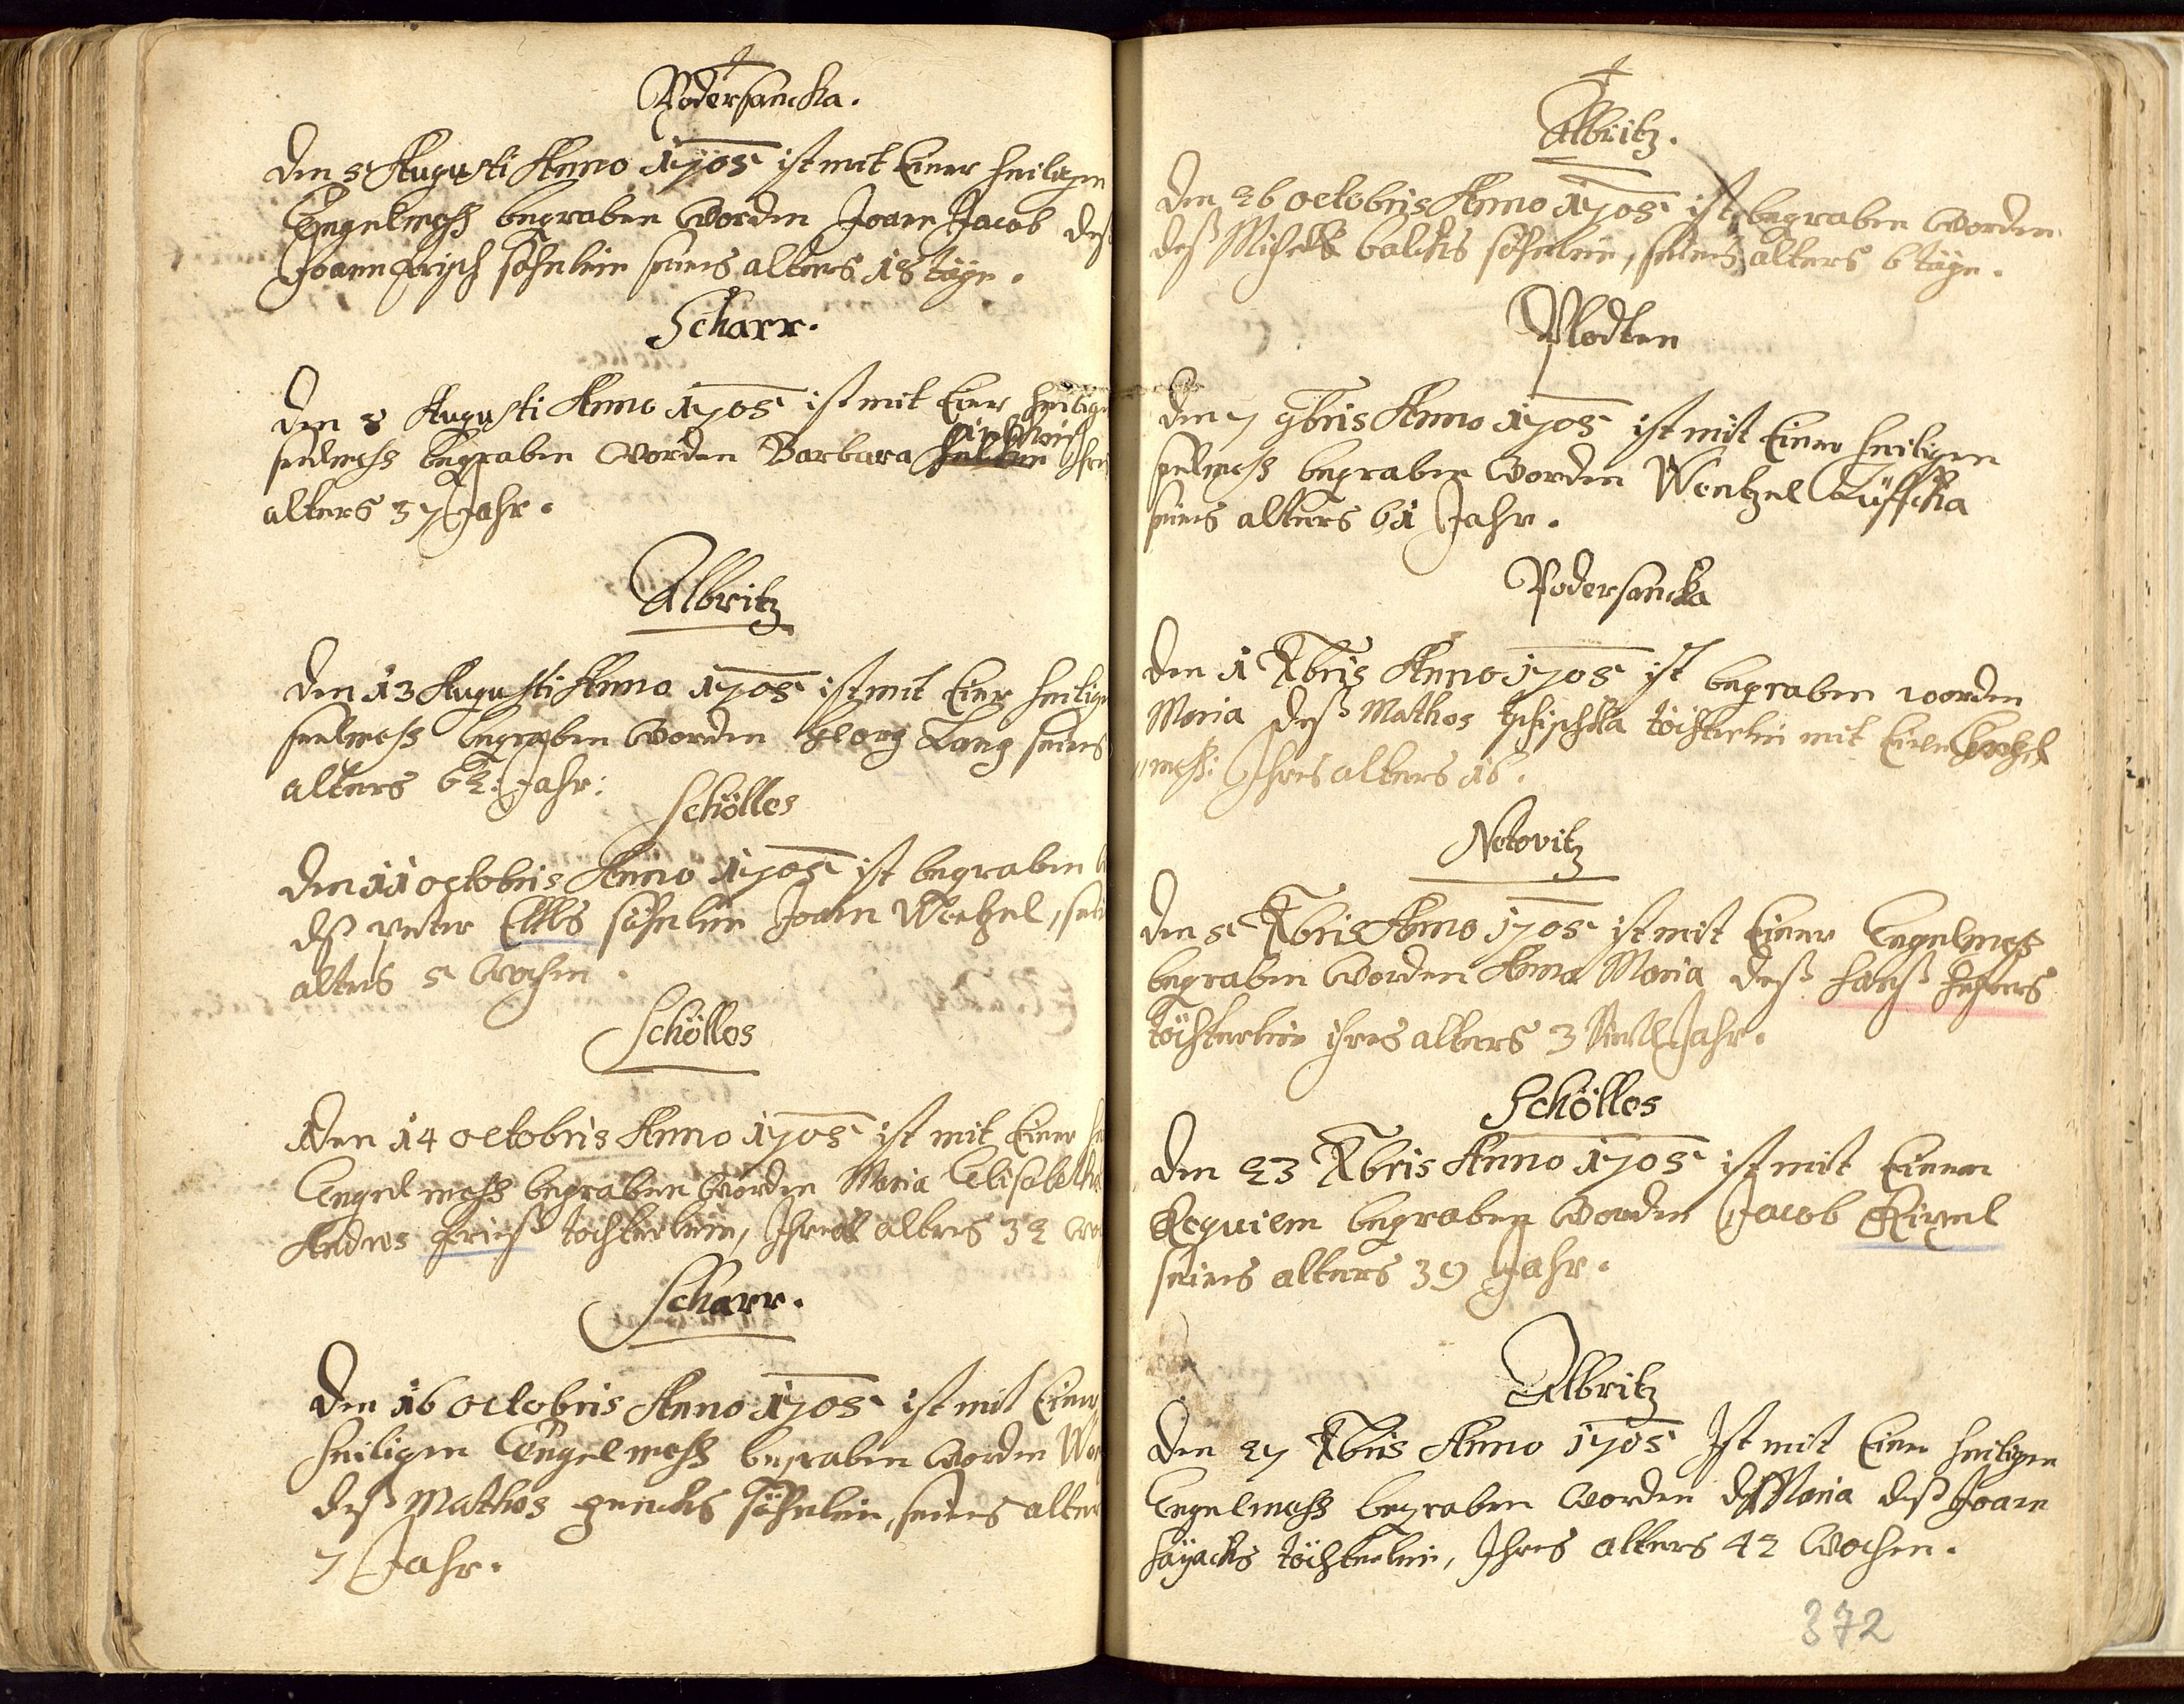 Podersancka.
den 5 Augusti Anno 1705 ist mit Einer heiligen
Engelmeß begraben worden Joann Jacob deß
Joann Frisch söhnlein seines alters 18 täge.
Scharr.
den 8 Augusti Anno 1705 ist mit Einer heilige
seelmess begraben worden Barbara Ihres
alters 37 Jahr.
Albritz
den 13 Augusti Anno 1705 ist mit Einer heilige
seelmess begraben worden Georg Lang seines
alters 62: Jahr:
Schölles
den 11 octobris Anno 1705 ist begraben
deß peter söhnlein Joann Wentzel,
alters 5 wochen.
Schölles
Den 14 octobris Anno 1705 ist mit Einer
Engelmess begraben worden Maria Elisabetha
Andres Frieß töchterlein, Ihres alters 32
Scharr.
den 16 octobris Anno 1705 ist mit Einer
heiligen Engelmess begraben worden
deß Mathes söhnlein, seines alters
7 Jahr.
Albritz.
den 26 octobris Anno 1705 ist begraben worden
deß söhnlein, seines alters 6 täge.
Plodten
den 7 9bris Anno 1705 ist mit Einer heiligen
seelmeß begraben worden Wentzel
seines alters 61 Jahr.
Podersancka
den 1 Xbris Anno 1705 ist begraben worden
Maria deß Mathes töchterlein mit Einer Engel
mess: Ihres alters 16.
Netovitz
den 5 Xbris Anno 1705 ist mit Einer Engelmess
begraben worden Anna Maria deß Hanß
töchterlein ihres alters 3 Jahr.
Schölles
den 23 Xbris Anno 1705 ist mit Einem
Requiem begraben worden Jacob
seines alters 39 Jahr.
Albritz
den 27 Xbris Anno 1705 Ist mit Einer heiligen
Engelmess begraben worden Maria deß Joann
töchterlein, Ihres alters 42 wochen.
372